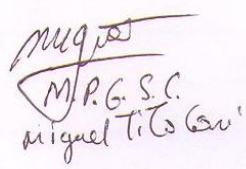 Miguel
M.P.G.S.C.
Miguel Tito